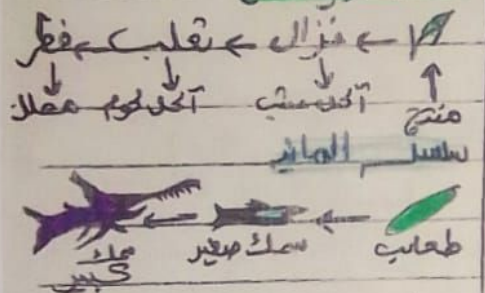 غزال ← ثعلب ← فطر
منتج آكل عشب آكل لحوم محلل
سلسلة الماء
طحالب سمك صغير سمك كبير